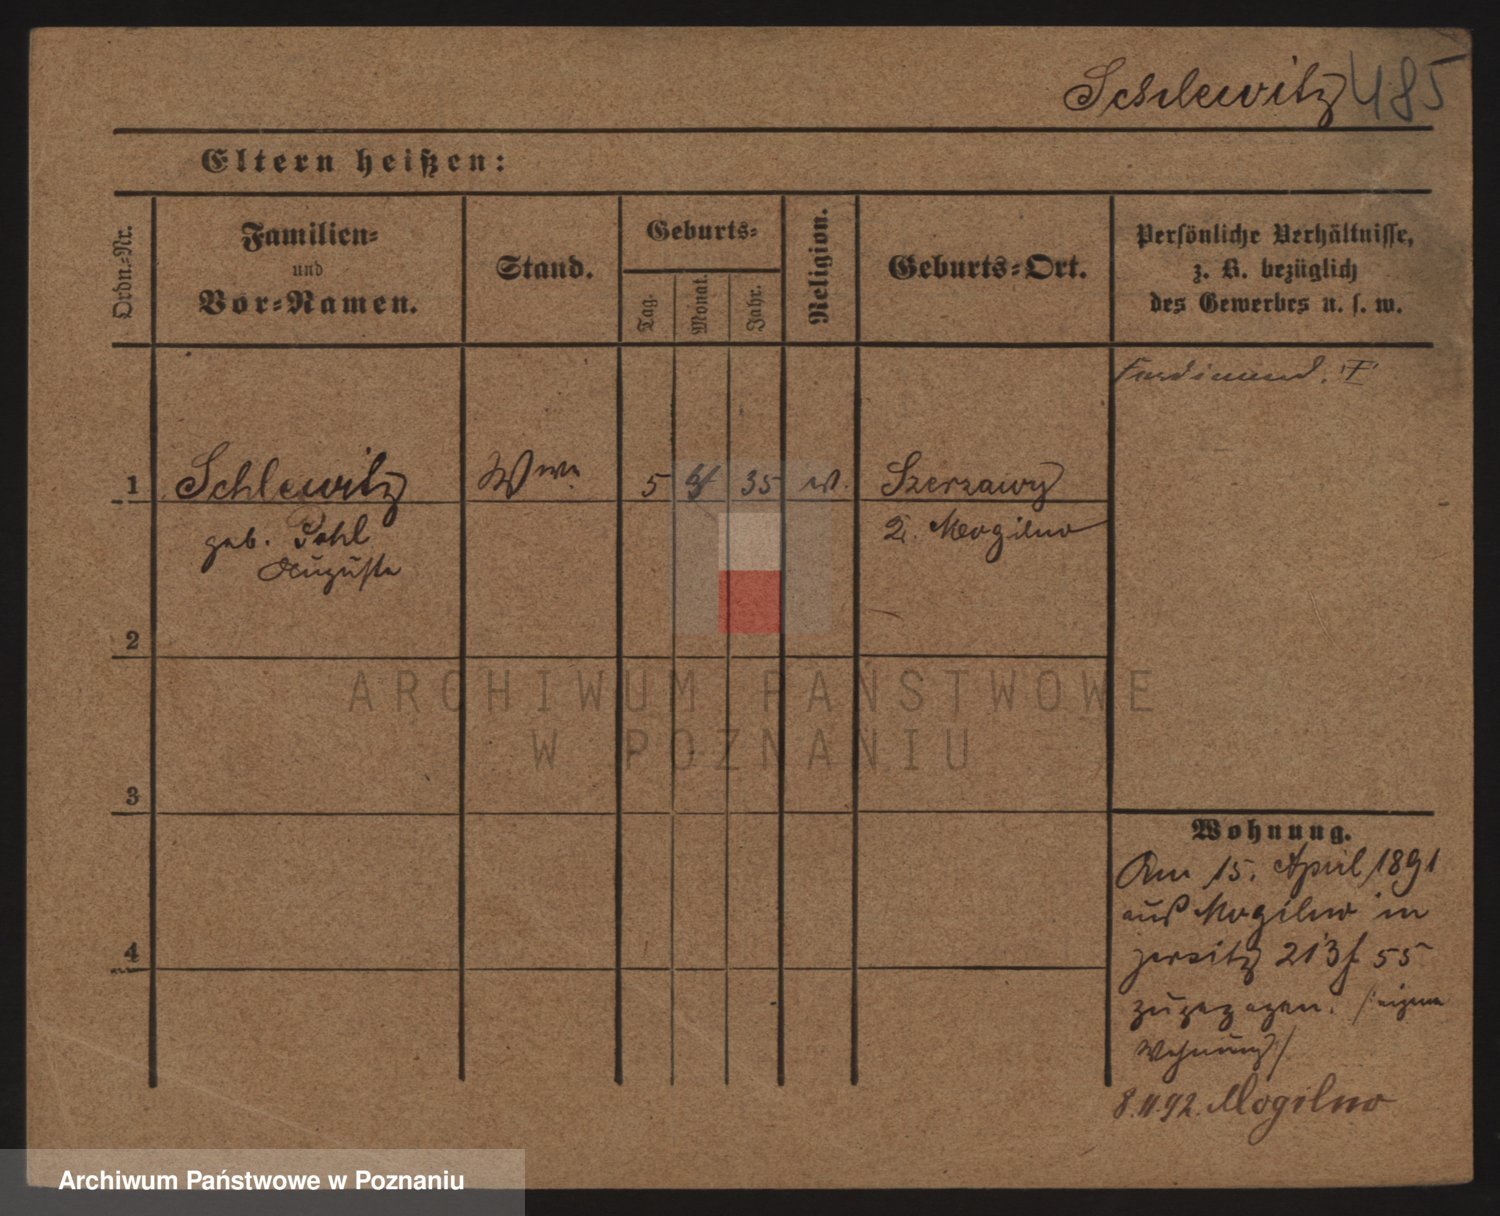 Schlewitz 485
Eltern heißen:
Ordn.-Nr.
Familien-
und
Vor-Namen.
Stand.
Geburts-
Tag.
Monat.
Jahr.
Religion.
Geburts-Ort.
Persönliche Verhältnisse,
z. B. bezüglich
des Gewerbes u. s. w.
Ferdinand. F
1 Schlewitz Wwe. 5 35 ev. Szerzawy
geb. Pohl
Auguste
2. Mogilno
2
ARCHIWUM PAŃSTWOWE
W POZNANIU
3
4
Wohnung.
Am 15. April 1891
aus Mogilno in
Jersitz 213f 55
zugezogen. /: eigene
Wohnung :/
8.11.92. Mogilno
Archiwum Państwowe w Poznaniu